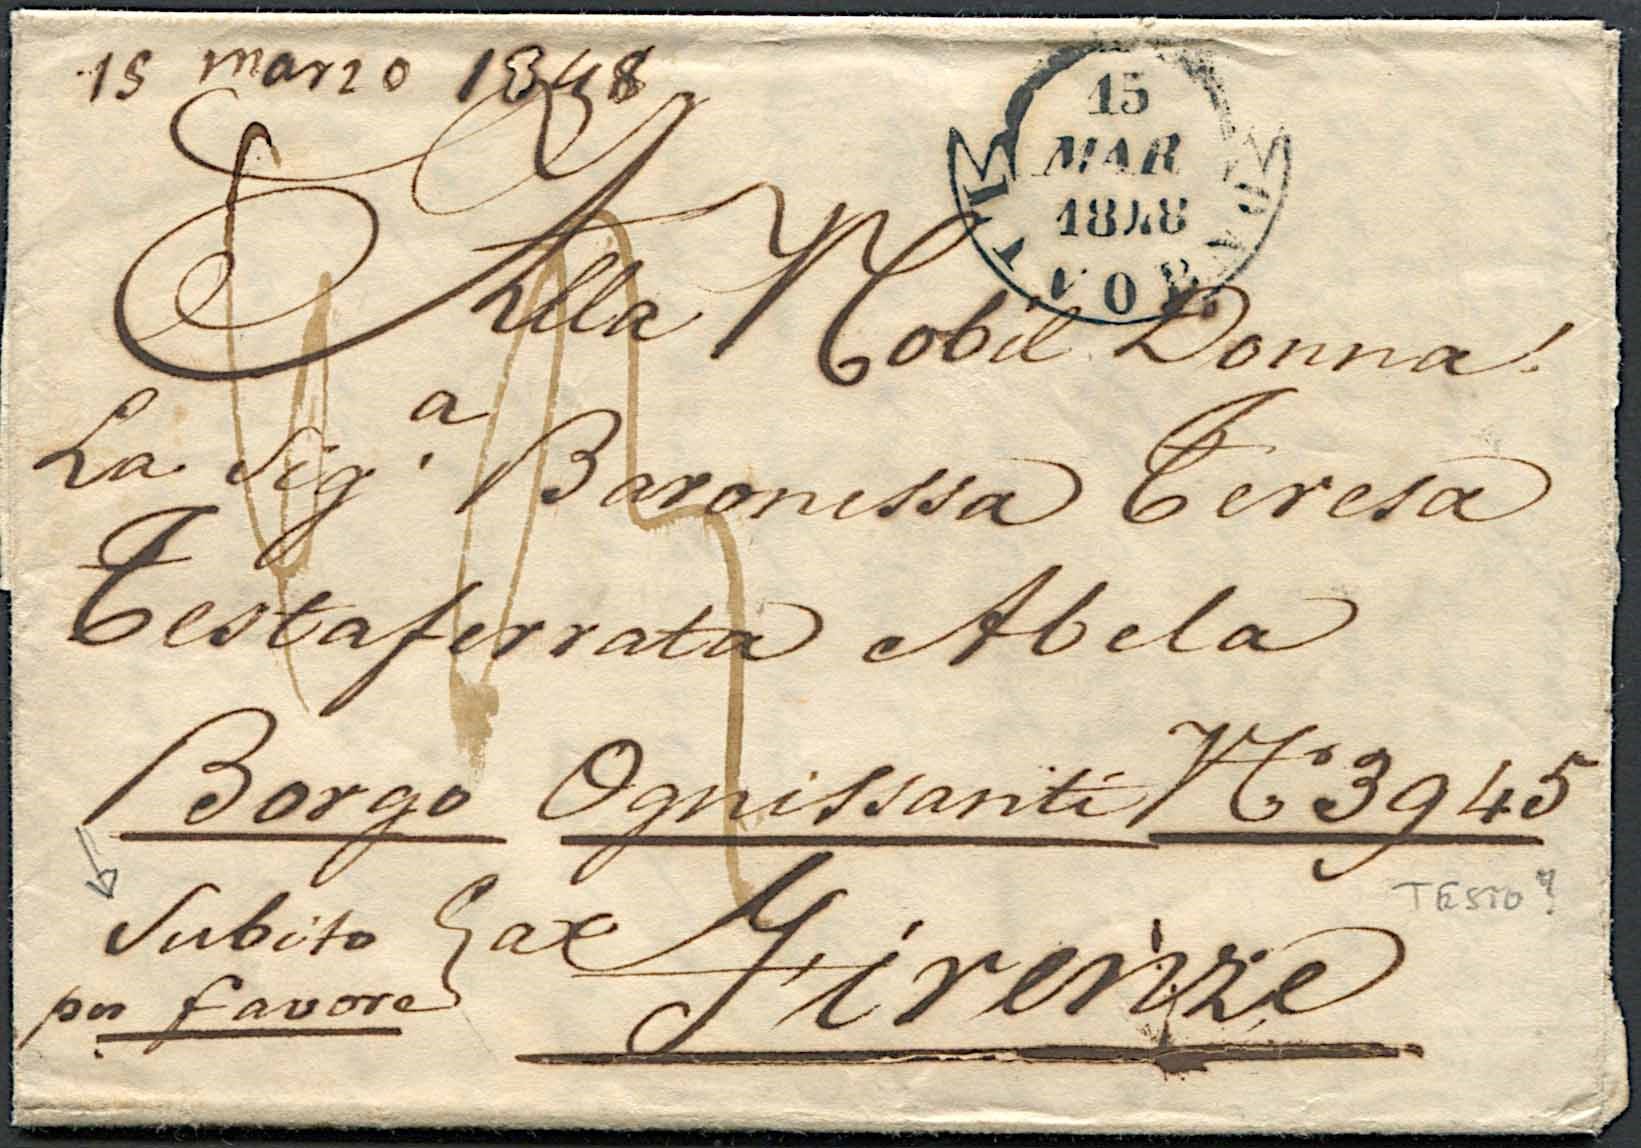 15 marzo 1848
15
MAR
1848
LIVORNO
Alla Nobil Donna
La Sig.a Baronessa Teresa
Testaferrata Abela
Borgo Ognissanti No 3945
Subito
per favore
Firenze
TESTO?